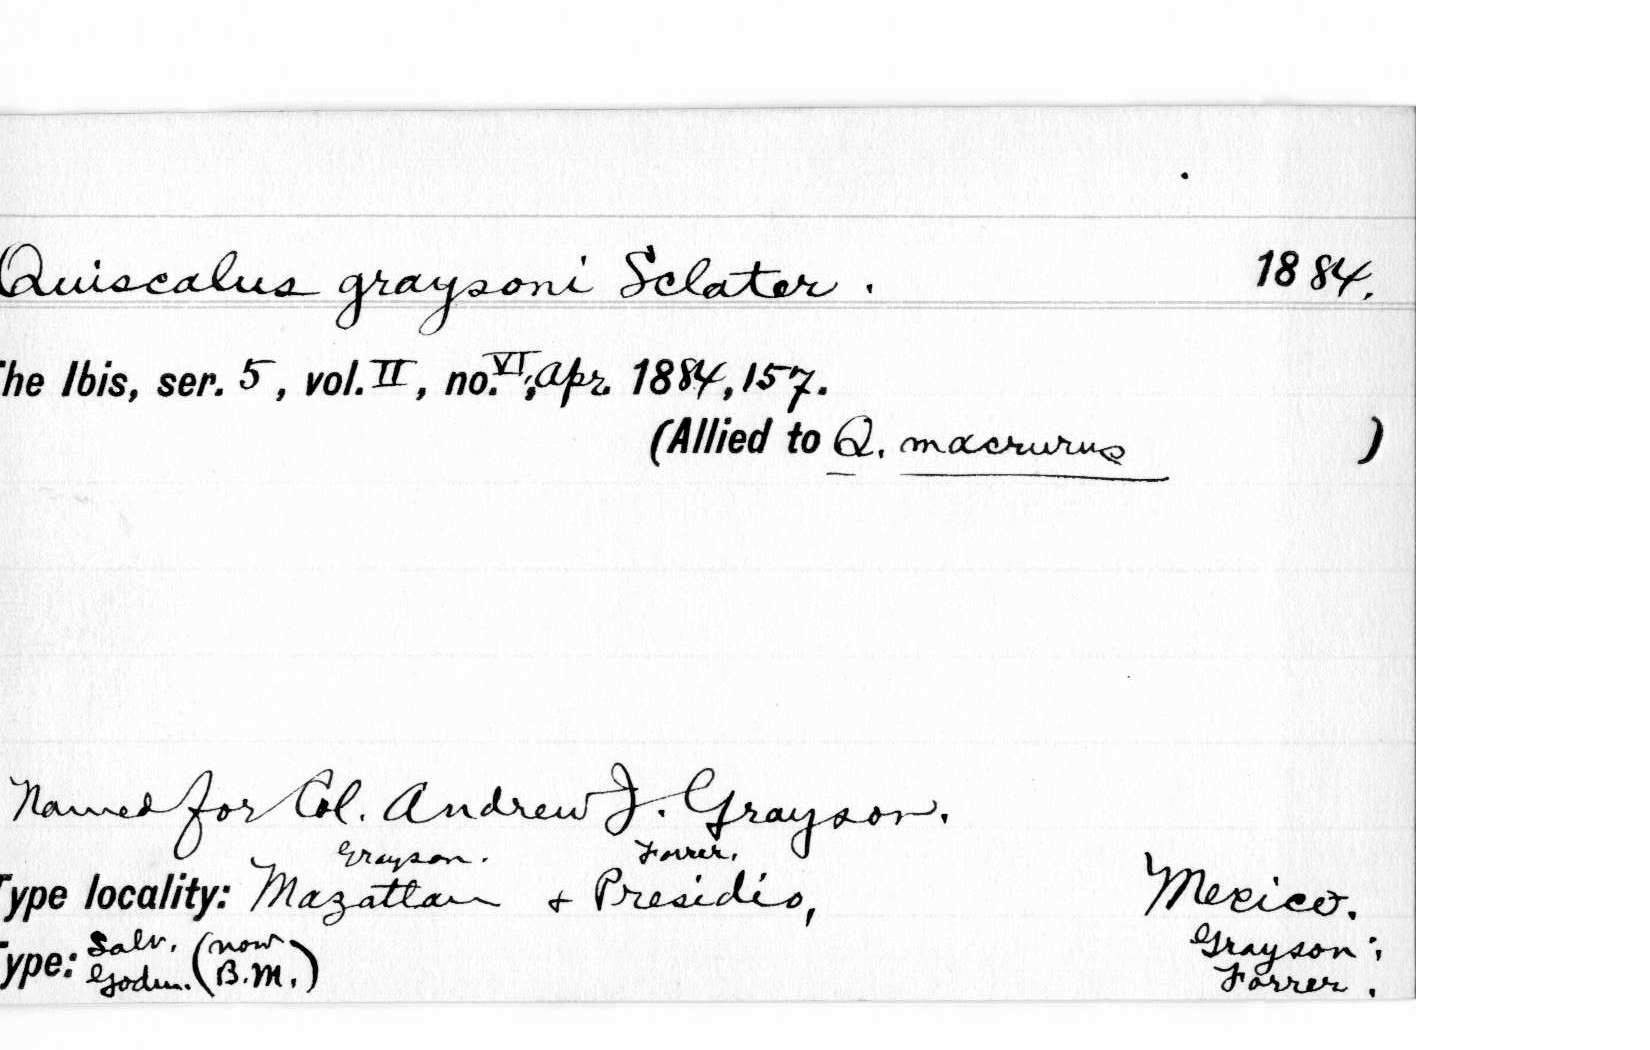 Quiscalus graysoni Sclater. 1884.
The Ibis, ser. 5, vol. II, no. VI, Apr. 1884, 157.
(Allied to Q. macrurus )
Named for Col. Andrew J. Grayson.
Grayson. Forrer.
Type locality: Mazatlan & Presidio, Mexico.
Type: Salv. (now Grayson;
Godm. B.M.) Forrer.